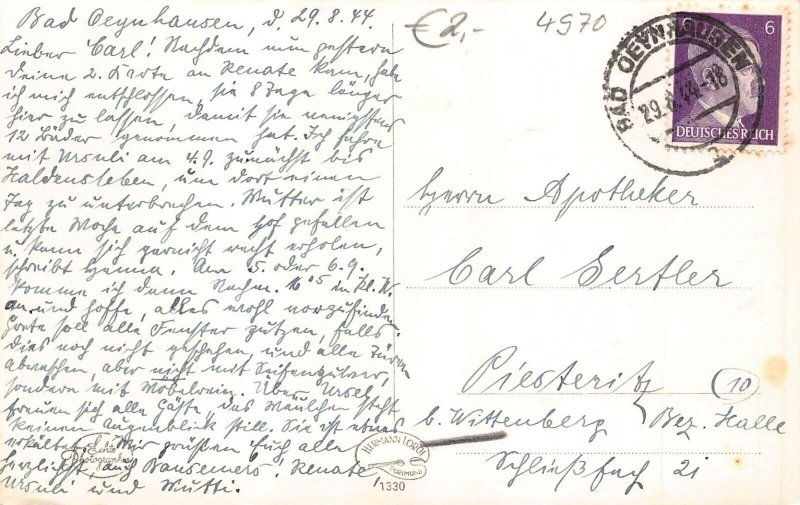 Bad Oeynhausen, d. 29.8.44
Lieber Carl! Nachdem nun gestern
deine 2. Karte an Renate kam, habe
ich mich entschlossen, sie 8 Tage länger
hier zu lassen, damit sie wenigstens
12 Bäder genommen hat. Ich fahre
mit Ursuli am 4.9. zunächst bis
Haldensleben, um dort einen
Tag zu unterbrechen. Mutter ist
letzte Woche auf dem Hof gefallen
u. kann sich garnicht recht erholen,
schreibt Henna. Am 5. oder 6.9.
komme ich dann Nachm. 16 05 in Kl. W.
an und hoffe, alles wohl vorzufinden.
Grete soll alle Fenster putzen, falls
dies noch nicht geschehen, und alle Türen
abwaschen, aber nicht mit Seifenpulver,
sondern mit Möbelrein. Über Ursel
freuen sich alle Gäste, das Mäulchen steht
keinen Augenblick still. Sie ist etwas
erkältet. Wir grüßen Euch alle
herzlichst, auch Renate,
Ursuli und Mutti.
Echte
Photographie
€ 2,-
4970
BAD OEYNHAUSEN
29.8.44-18
6
DEUTSCHES REICH
Herrn Apotheker
Carl Sertler
Piesteritz (10)
b. Wittenberg Bez. Halle
Schließfach 21
HERMANN LORCH
DORTMUND
1330